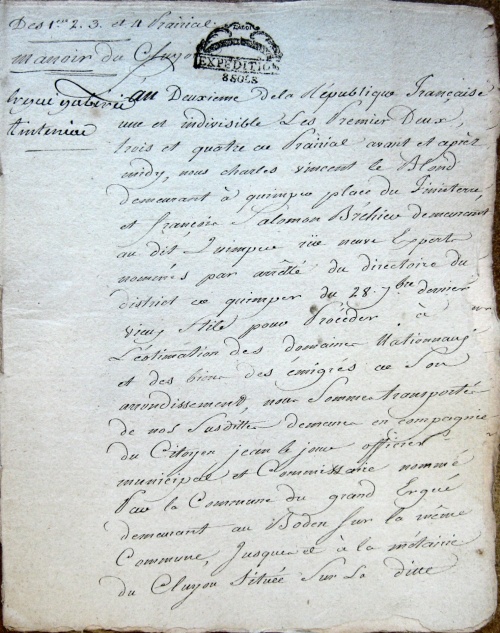 Des 1er 2. 3. et 4 Prairial.
manoir du Cluyou
Ergue gaberic
tinteniac
EXPEDITION
8 SOLS
an Deuxieme de la République Française
une et indivisible Les Premier Deux,
trois et quatre ce Prairial avant et après
midy, nous charles vincent le Blond
demeurant à quimper place du finisterre
et françois Salomon Bréhier demeurant
au dit Quimper rüe neuve Experts
nommés par arrêté du directoire du
district de quimper du 28. 7bre dernier
vieux stile pour Procéder à
L'estimation des domaines Nationnaux
et des biens des émigrés de Son
arrondissement, nous Sommes transportés
de nos Susdittes demeures en compagnie
du Citoyen jean le joue officier
municipal et Commissaire nommé
Par la Commune du grand Ergué
demeurant au Boden Sur la même
Commune, Jusques à la métairie
du Cluyou Située Sur La ditte